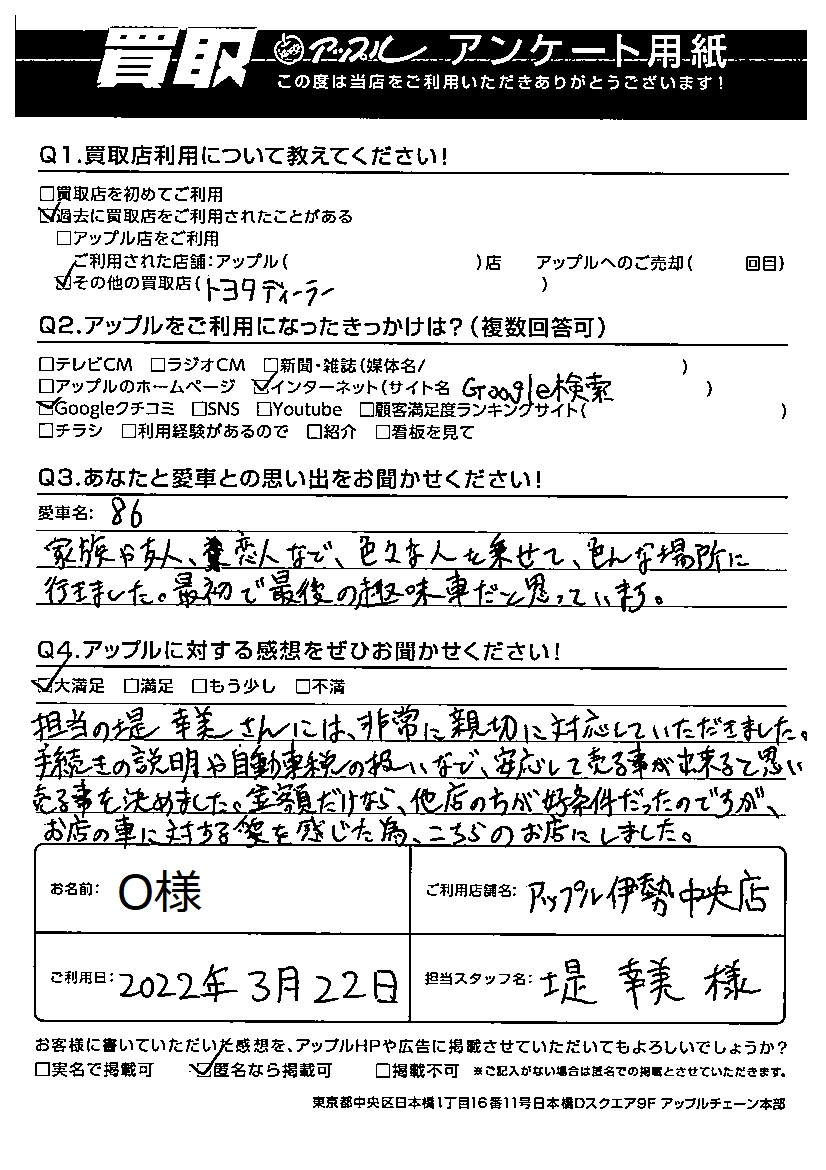 買取 アップル アンケート用紙
この度は当店をご利用いただきありがとうございます!
Q1.買取店利用について教えてください!
□買取店を初めてご利用
☑過去に買取店をご利用されたことがある
□アップル店をご利用
ご利用された店舗:アップル( )店 アップルへのご売却( 回目)
☑その他の買取店(トヨタディーラー )
Q2.アップルをご利用になったきっかけは?(複数回答可)
□テレビCM □ラジオCM □新聞・雑誌(媒体名/ )
□アップルのホームページ ☑インターネット(サイト名 Google検索 )
☑Googleクチコミ □SNS □Youtube □顧客満足度ランキングサイト( )
□チラシ □利用経験があるので □紹介 □看板を見て
Q3.あなたと愛車との思い出をお聞かせください!
愛車名: 86
家族や友人、恋人など、色々な人を乗せて、色んな場所に
行きました。最初で最後の趣味車だと思っています。
Q4.アップルに対する感想をぜひお聞かせください!
☑大満足 □満足 □もう少し □不満
担当の堤 幸美さんには、非常に親切に対応していただきました。
手続きの説明や自動車税の扱いなど、安応して売る事が出来ると思い
売る事を決めました。金額だけなら、他店のちが好条件だったのですが、
お店の車に対する愛を感じた為、こちらのお店にしました。
お名前: O様
ご利用店舗名: アップル伊勢中央店
ご利用日: 2022年 3月 22日
担当スタッフ名: 堤 幸美 様
お客様に書いていただいた感想を、アップルHPや広告に掲載させていただいてもよろしいでしょうか?
□実名で掲載可 ☑匿名なら掲載可 □掲載不可 ※ご記入がない場合は匿名での掲載とさせていただきます。
東京都中央区日本橋1丁目16番11号日本橋Dスクエア9F アップルチェーン本部